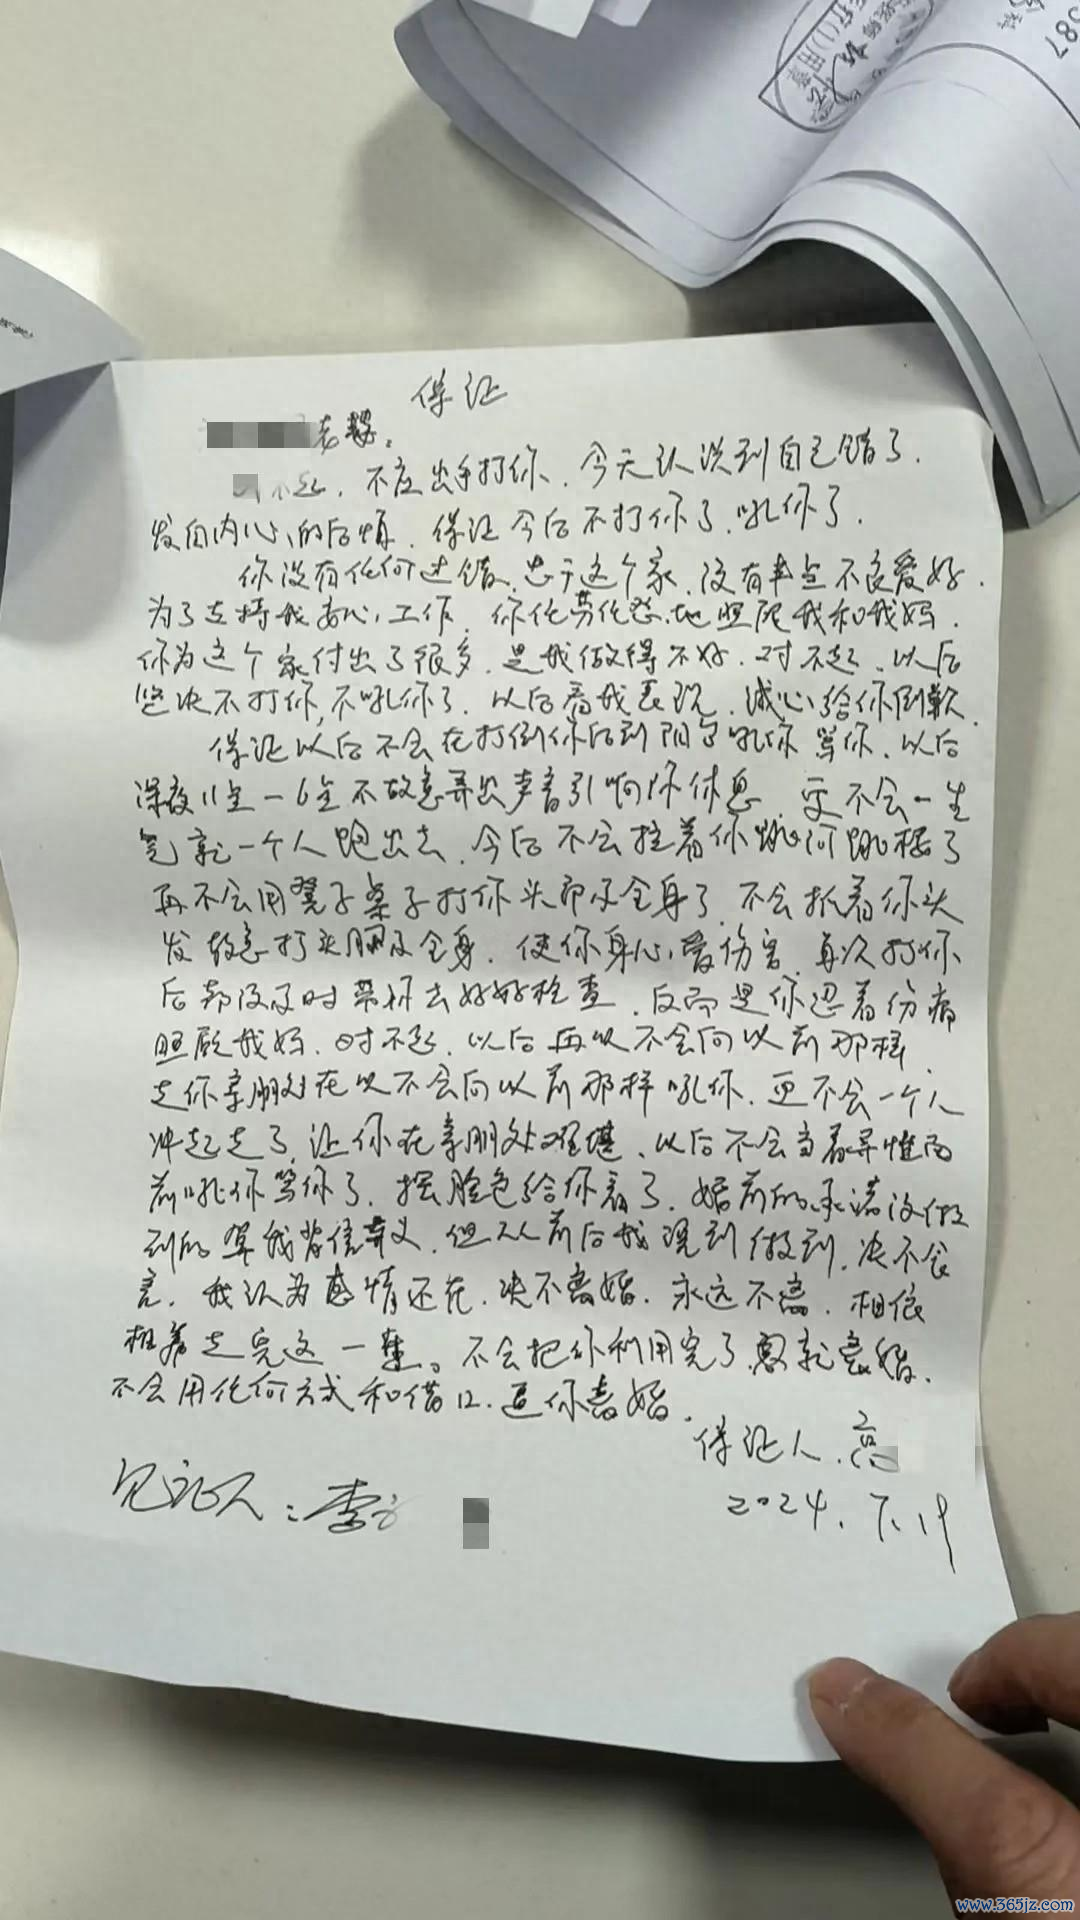 保证
老婆。
不起，不应出手打你、今天认识到自己错了．
发自内心的后悔．保证今后不打你了．吼你了．
你没有任何过错、忠于这个家、没有半点不良爱好．
为了支持我安心工作．你任劳任怨地照顾我和我妈．
你为这个家付出了很多．是我做得不好．对不起．以后
坚决不打你，不吼你了．以后看我表现．诚心给你倒歉．
保证以后不会在打倒你后到阳台吼你骂你．以后
深夜11点一6点不故意弄出声音引响你休息．更不会一生
气就一个人跑出去．今后不会拉着你跳河跳楼了
再不会用凳子桌子打你头部及全身了．不会抓着你头
发故意打头脑及全身．使你身心受伤害．每次打你
后都没及时带你去好好检查．反而是你忍着伤痛
照顾我妈．对不起．以后再以不会向以前那样
走你亲朋处在以不会向以前那样吼你．更不会一个人
冲起走了．让你在亲朋处难堪、以后不会当着异性面
前吼你骂你了．摆脸色给你看了．婚前的承诺没做
到的算我背信弃义．但从前后我说到做到．决不食
言．我认为感情还在．决不离婚．永远不离．相依
相养走完这一辈。不会把你利用完了就离婚．
不会用任何方式和借口．逼你离婚．
保证人．高
见证人：李
2024.7.19
www.365jz.com